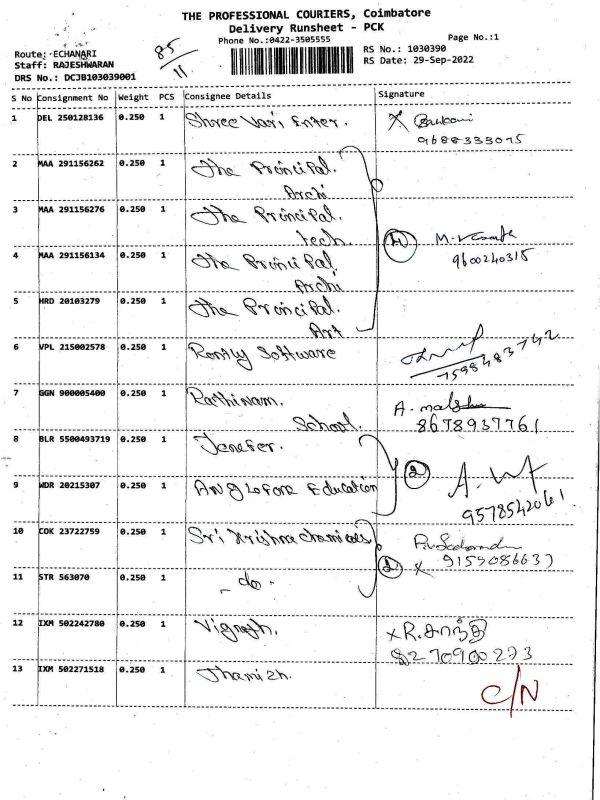 THE PROFESSIONAL COURIERS, Coimbatore
Delivery Runsheet - PCK
Phone No.:0422-3505555
Page No.:1
Route: ECHANARI
85/11
RS No.: 1030390
Staff: RAJESHWARAN
RS Date: 29-Sep-2022
DRS No.: DCJB103039001
S No Consignment No Weight PCS Consignee Details Signature
1 DEL 250128136 0.250 1 Shree Vari Enter.
9688333015
2 MAA 291156262 0.250 1 The Principal.
Archi
3 MAA 291156276 0.250 1 The Principal.
tech.
4 MAA 291156134 0.250 1 The Principal.
Archi
9600240315
5 HRD 20103279 0.250 1 The Principal.
Art
6 VPL 215002578 0.250 1 Rently Software
7598483742
7 GGN 900005400 0.250 1 Rathinam.
School.
8678937761
8 BLR 5500493719 0.250 1 Jenefer.
2
9 WDR 20215307 0.250 1 Anglofone Education
9578542061
10 COK 23722759 0.250 1 Sri Krishna chemicals
11 STR 563070 0.250 1 - do -
12 IXM 502242780 0.250 1 Vignesh.
x R. சாந்தி
8270900273
13 IXM 502271518 0.250 1 Thamizh.
C/N